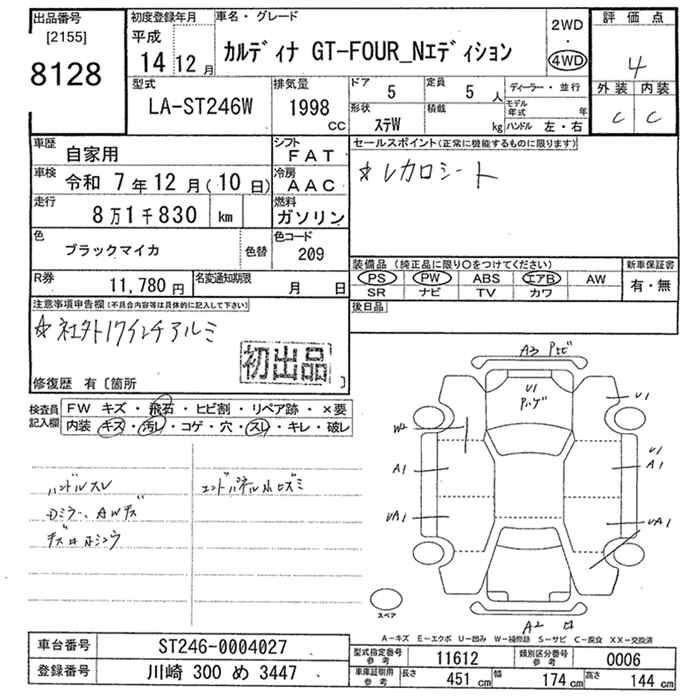 出品番号
[2155]
8128
初度登録年月
平成
14年12月
車名・グレード
カルディナ GT-FOUR_Nエディション
2WD
・
4WD
評価点
4
外装 内装
C C
型式
LA-ST246W
排気量
1998
cc
ドア 5
定員 5 人
形状 ステW
積載 kg
ディーラー・並行
モデル年式 年
ハンドル 左・右
車歴 自家用
シフト FAT
車検 令和 7年12月(10日)
冷房 AAC
走行 8万1千830 km
燃料 ガソリン
色 ブラックマイカ 色替
色コード 209
R券 11,780円
名変通知期限 月 日
セールスポイント(正常に機能するものに限ります)
☆レカロシート
装備品 (純正品に限り○をつけてください)
新車保証書
PS PW ABS エアB AW
SR ナビ TV カワ
有・無
後日品
注意事項申告欄(不具合内容等は具体的に記入して下さい)
☆社外17インチアルミ
初出品
修復歴 有〔箇所 〕
検査員記入欄
FW キズ・飛石・ヒビ割・リペア跡・×要
内装 キズ・汚レ・コゲ・穴・スレ・キレ・破レ
ハンドルスレ
Dミラー、AWキズ
エンドパネル小ヒズミ
A3
U1
U1
W2
A1
U1
A1
UA1
UA1
A2
スペア
A-キズ E-エクボ U-凹み W-補修跡 S-サビ C-腐食 XX-交換済
車台番号 ST246-0004027
登録番号 川崎 300 め 3447
型式指定番号 参考 11612
類別区分番号 参考 0006
車庫証明用 参考 長さ 451cm 幅 174cm 高さ 144cm